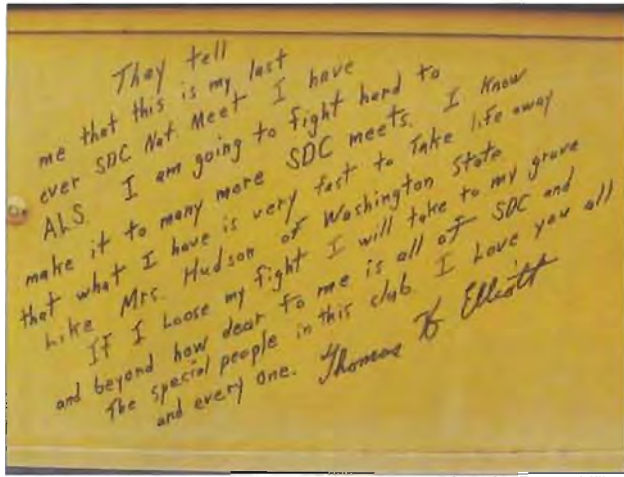 They tell
me that this is my last
ever SDC Nat. Meet I have
ALS. I am going to fight hard to
make it to many more SDC meets. I Know
that what I have is very fast to Take life away
Like Mrs. Hudson of Washington State
If I Loose my fight I will take to my grave
and beyond how dear to me is all of SDC and
The special people in this club. I Love you all
and every one. Thomas B Elliott